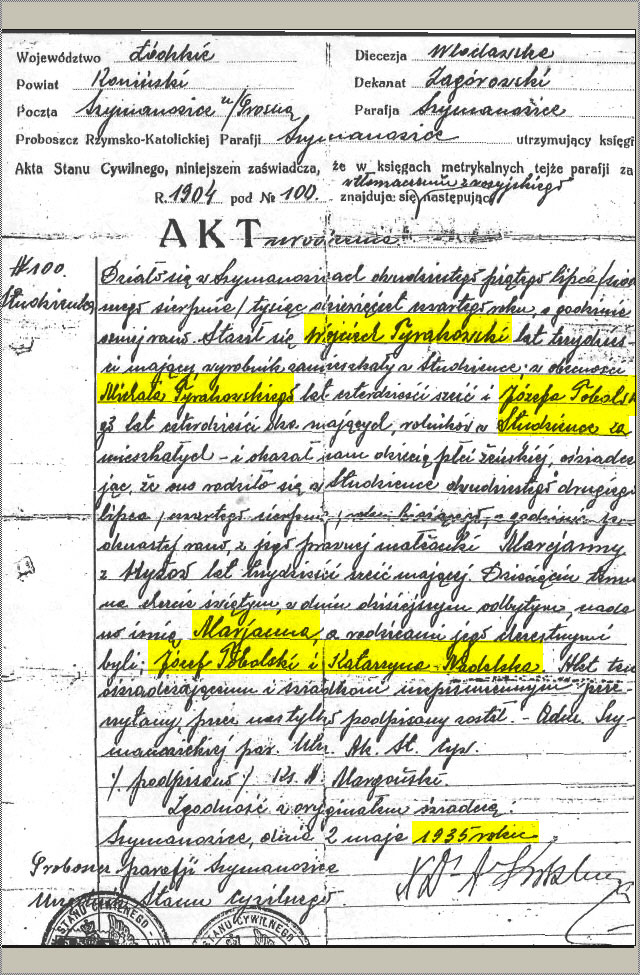 Województwo Łódzkie Diecezja Włocławska
Powiat Koniński Dekanat Zagórowski
Poczta Szymanowice n/Prosną Parafja Szymanowice
Proboszcz Rzymsko-Katolickiej Parafji Szymanowice utrzymujący księgi
Akta Stanu Cywilnego, niniejszem zaświadcza, że w księgach metrykalnych tejże parafji za
w tłomaczeniu z rosyjskiego
R. 1904 pod № 100. znajduje się następując
AKT urodzenia
№ 100. Działo się w Szymanowicach dwudziestego piątego lipca /siód
Studzienka mego sierpnia/ tysiąc dziewięćset czwartego roku, o godzinie
ósmej rano. Stawił się Wojciech Tyrakowski lat trzydzieś-
ci mający, wyrobnik zamieszkały w Studzience, w obecności
Michała Tyrakowskiego lat czterdzieści sześć i Józefa Tobolsk
go lat czterdzieści dwa mających, rolników w Studzience za
mieszkałych - i okazał nam dziecię płci żeńskiej, oświadcza
jąc, że ono rodziło się w Studzience dwudziestego drugiego
lipca /czwartego sierpnia/ roku bieżącego, o godzinie je
denastej rano, z jego prawnej małżonki Marcjanny
z lat trzydzieści sześć mającej. Dziecięciu temu
na chrzcie świętym, w dniu dzisiejszym odbytym, nada
no imię Marjanna, a rodzicami jego chrzestnymi
byli: Józef Tobolski i Katarzyna Akt ten
oświadczającemu i świadkom niepiśmiennym prze-
czytany przez nas tylko podpisany został. - Adm. Szy-
manowickiej par. Utrz. Ak. St. Cyw.
/. podpisano / Ks. Margoński.
Zgodność z oryginałem świadczę
Szymanowice, dnia 2 maja 1935 roku.
Proboszcz parafji Szymanowice
Urzędnik Stanu Cywilnego
STANU CYWILNEGO
STANU CYWILNEGO